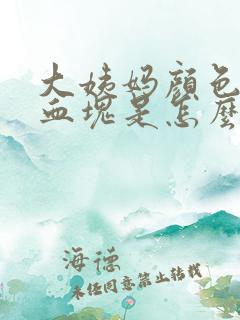 大姨妈颜色
血塊是怎麼
海德
未经同意禁止转载